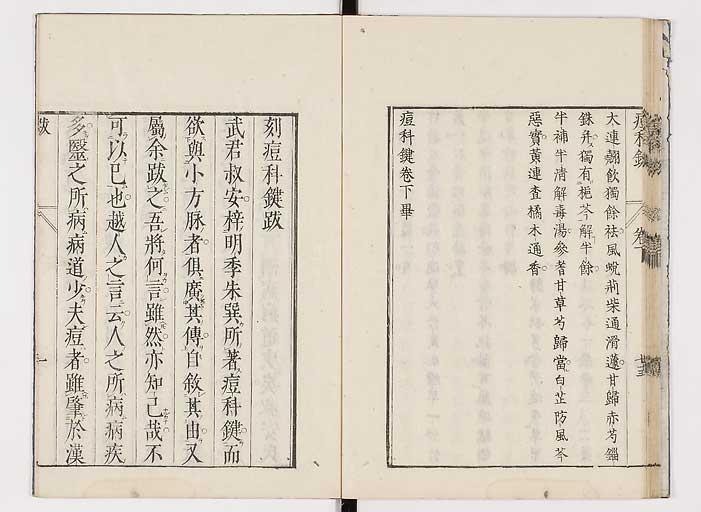 痘科鍵 卷下
大連翹飲獨餘祛風蛻荊柴通滑蓬甘歸赤芍錙
銖弁獨有梔芩解半餘
牛補半清解毒湯參耆甘草芍歸當白芷防風芩
惡實黄連査橘木通香
痘科鍵卷下畢
刻痘科鍵跋
武君叔安梓明季朱巽所著痘科鍵而
欲與小方脉者俱廣其傳自敘其由又
屬余跋之吾將何言雖然亦知己哉不
可以已也越人之言云人之所病病疾
多毉之所病病道少夫痘者雖肇於漢
跋 一